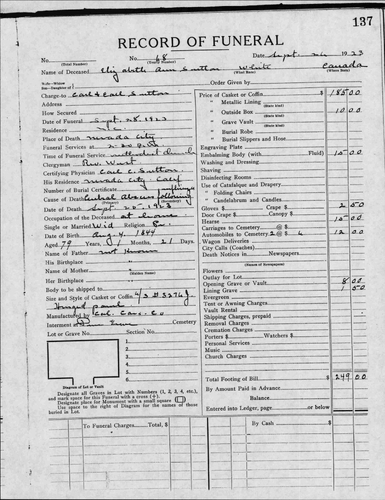 137
RECORD OF FUNERAL
No. No. 68 Date Sept. 24 1923
(Total Number) (Yearly Number)
Name of Deceased Elizabeth Ann Sutton White Canada
(What Race) (Where Born)
Charge to Carl & Earl Sutton
Address
How Secured
Date of Funeral Sept. 28, 1923
Residence
Place of Death Nevada City
Funeral Services at
Time of Funeral Service
Clergyman Rev.
Certifying Physician Carl C. Sutton
His Residence Nevada City Calif
Number of Burial Certificate
Cause of Death following
Date of Death Sept. 1923
Occupation of the Deceased at home
Single or Married Wid Religion
Date of Birth 4 1844
Aged 79 Years, 1 Months, 21 Days
Name of Father not known
His Birthplace
Name of Mother
(Maiden Name)
Her Birthplace
Body to be shipped to
Size and Style of Casket or Coffin
Manufactured by Cal. Cas. Co
Interment at Cemetery
Lot or Grave No. Section No.
Diagram of Lot or Vault
Designate all Graves in Lot with Numbers (1, 2, 3, 4, etc.),
and mark space for this Funeral with a cross (+).
Designate place for Monument with a small square
Use space to right of Diagram for the names of those
buried in Lot.
Order Given by
Price of Casket or Coffin $ 185 00
" Metallic Lining
(State kind)
" Outside Box 10 00
(State kind)
" Grave Vault
(State kind)
" Burial Robe
(State kind)
" Burial Slippers and Hose
Engraving Plate
Embalming Body (with Fluid) 15 00
Washing and Dressing
Shaving
Disinfecting Rooms
Use of Catafalque and Drapery
" Folding Chairs
" Candelabrum and Candles
Gloves $ Crape $ 2 50
Door Crape $ Canopy $
Hearse 15 00
Carriages to Cemetery @ $
Automobiles to Cemetery 2 @ $ 6 12 00
Wagon Deliveries
City Calls (Coaches)
Death Notices in Newspapers
(Names of Newspapers)
Flowers
Outlay for Lot
Opening Grave or Vault 8 00
Lining Grave 1 50
Evergreen
Tent or Awning Charges
Vault Rental
Shipping Charges, prepaid
Removal Charges
Cremation Charges
Porters $ Watchers $
Personal Services
Music
Church Charges
Total Footing of Bill $ 249 00
By Amount Paid in Advance
Balance
Entered into Ledger, page or below
To Funeral Charges Total, $ By Cash $